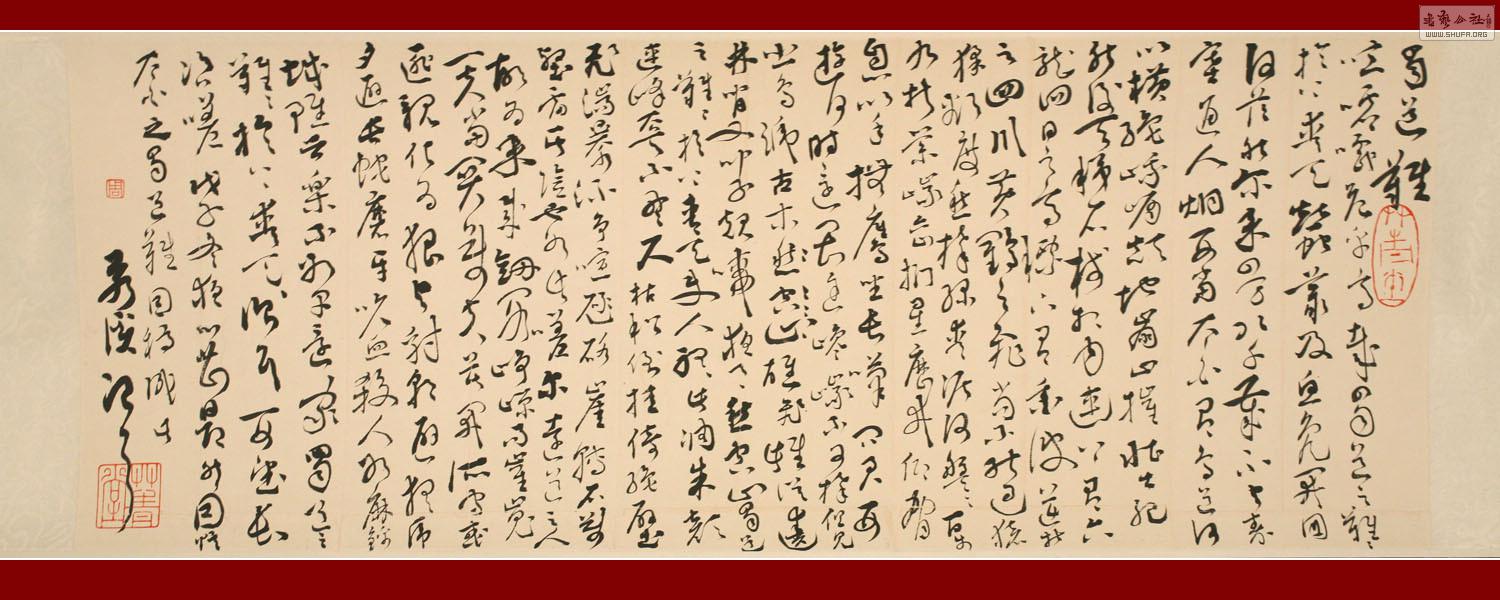 蜀道難
噫嘘嚱危乎高哉蜀道之難〻
於上青天蠶叢及魚鳧開國
何茫然爾來四萬八千歲不與秦
塞通人烟西當太白有鳥道可
以橫絕峨嵋巔地崩山摧壯士死
然後天梯石棧相鉤連上有六
龍回日之高標下有衝波逆折
之回川黃鶴之飛尚不能過猿
猱欲度愁攀緣青泥何盤〻百步
九折縈巖巒捫星歷井仰脅
息以手撫膺坐長嘆問君西
遊何時還畏途巉巖不可攀但見
悲鳥號古木愁空山雄飛雌從繞
林間又聞子規啼夜月愁空山蜀道
之難〻於上青天使人聽此凋朱顏
連峰去天不盈尺枯松倒挂倚絕壁
飛湍瀑流爭喧豗砯崖轉石萬
壑雷其險也如此嗟爾遠道之人
胡為乎來哉劍閣崢嶸而崔嵬
一夫當關萬夫莫開所守或
匪親化為狼與豺朝避猛虎
夕避長蛇磨牙吮血殺人如麻錦
城雖云樂不如早還家蜀道之
難〻於上青天側身西望長
咨嗟戊子冬夜
太白之蜀道難因成此
WWW.SHUFA.ORG